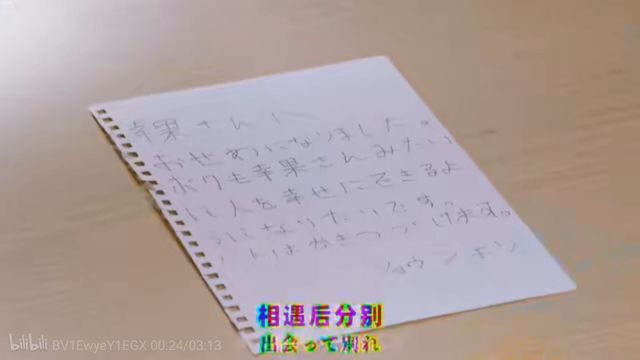 幸果さんへ
おせわになりました。
ボクも幸果さんみたい
に人を幸せにできるよ
うになりたいです。
はがきつづけます。
ショウ
相遇后分别
出会って別れ
bilibili BV1EwyeY1EGX 00:24/03:13